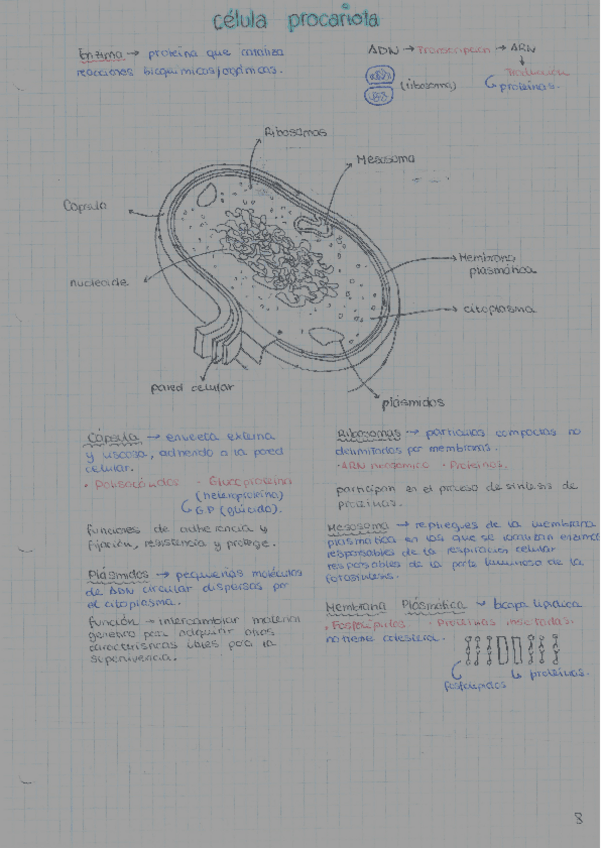 célula procariota
Enzima → proteína que cataliza
reacciones bioquímicas/orgánicas.
ADN → Transcripción → ARN
↓
Traducción
(ribosoma)
proteínas.
Ribosomas
Mesosoma
Cápsula
Membrana
plasmática
nucleoide
citoplasma
pared celular
plásmidos
Cápsula → envuelta externa
y viscosa, adherido a la pared
celular.
• Polisacáridos • Glucoproteína
(heteroproteína)
G.P (glúcido).
funciones de adherencia y
fijación, resistencia y protege.
Plásmidos → pequeñas moléculas
de ADN circular dispersas por
el citoplasma.
función → intercambiar material
genético para adquirir otras
características útiles para la
supervivencia.
Ribosomas → partículas compactas no
delimitadas por membrana.
• ARN • Proteínas,
participan en el proceso de síntesis de
proteínas.
Mesosoma → repliegues de la membrana
plasmática en los que se localizan enzimas
responsables de la respiración celular
responsables de la parte luminosa de la
fotosíntesis.
Membrana Plásmática → bicapa lipídica
• Fosfolípidos • Proteínas insertadas.
no tiene colesterol.
proteínas.
fosfolípidos
8